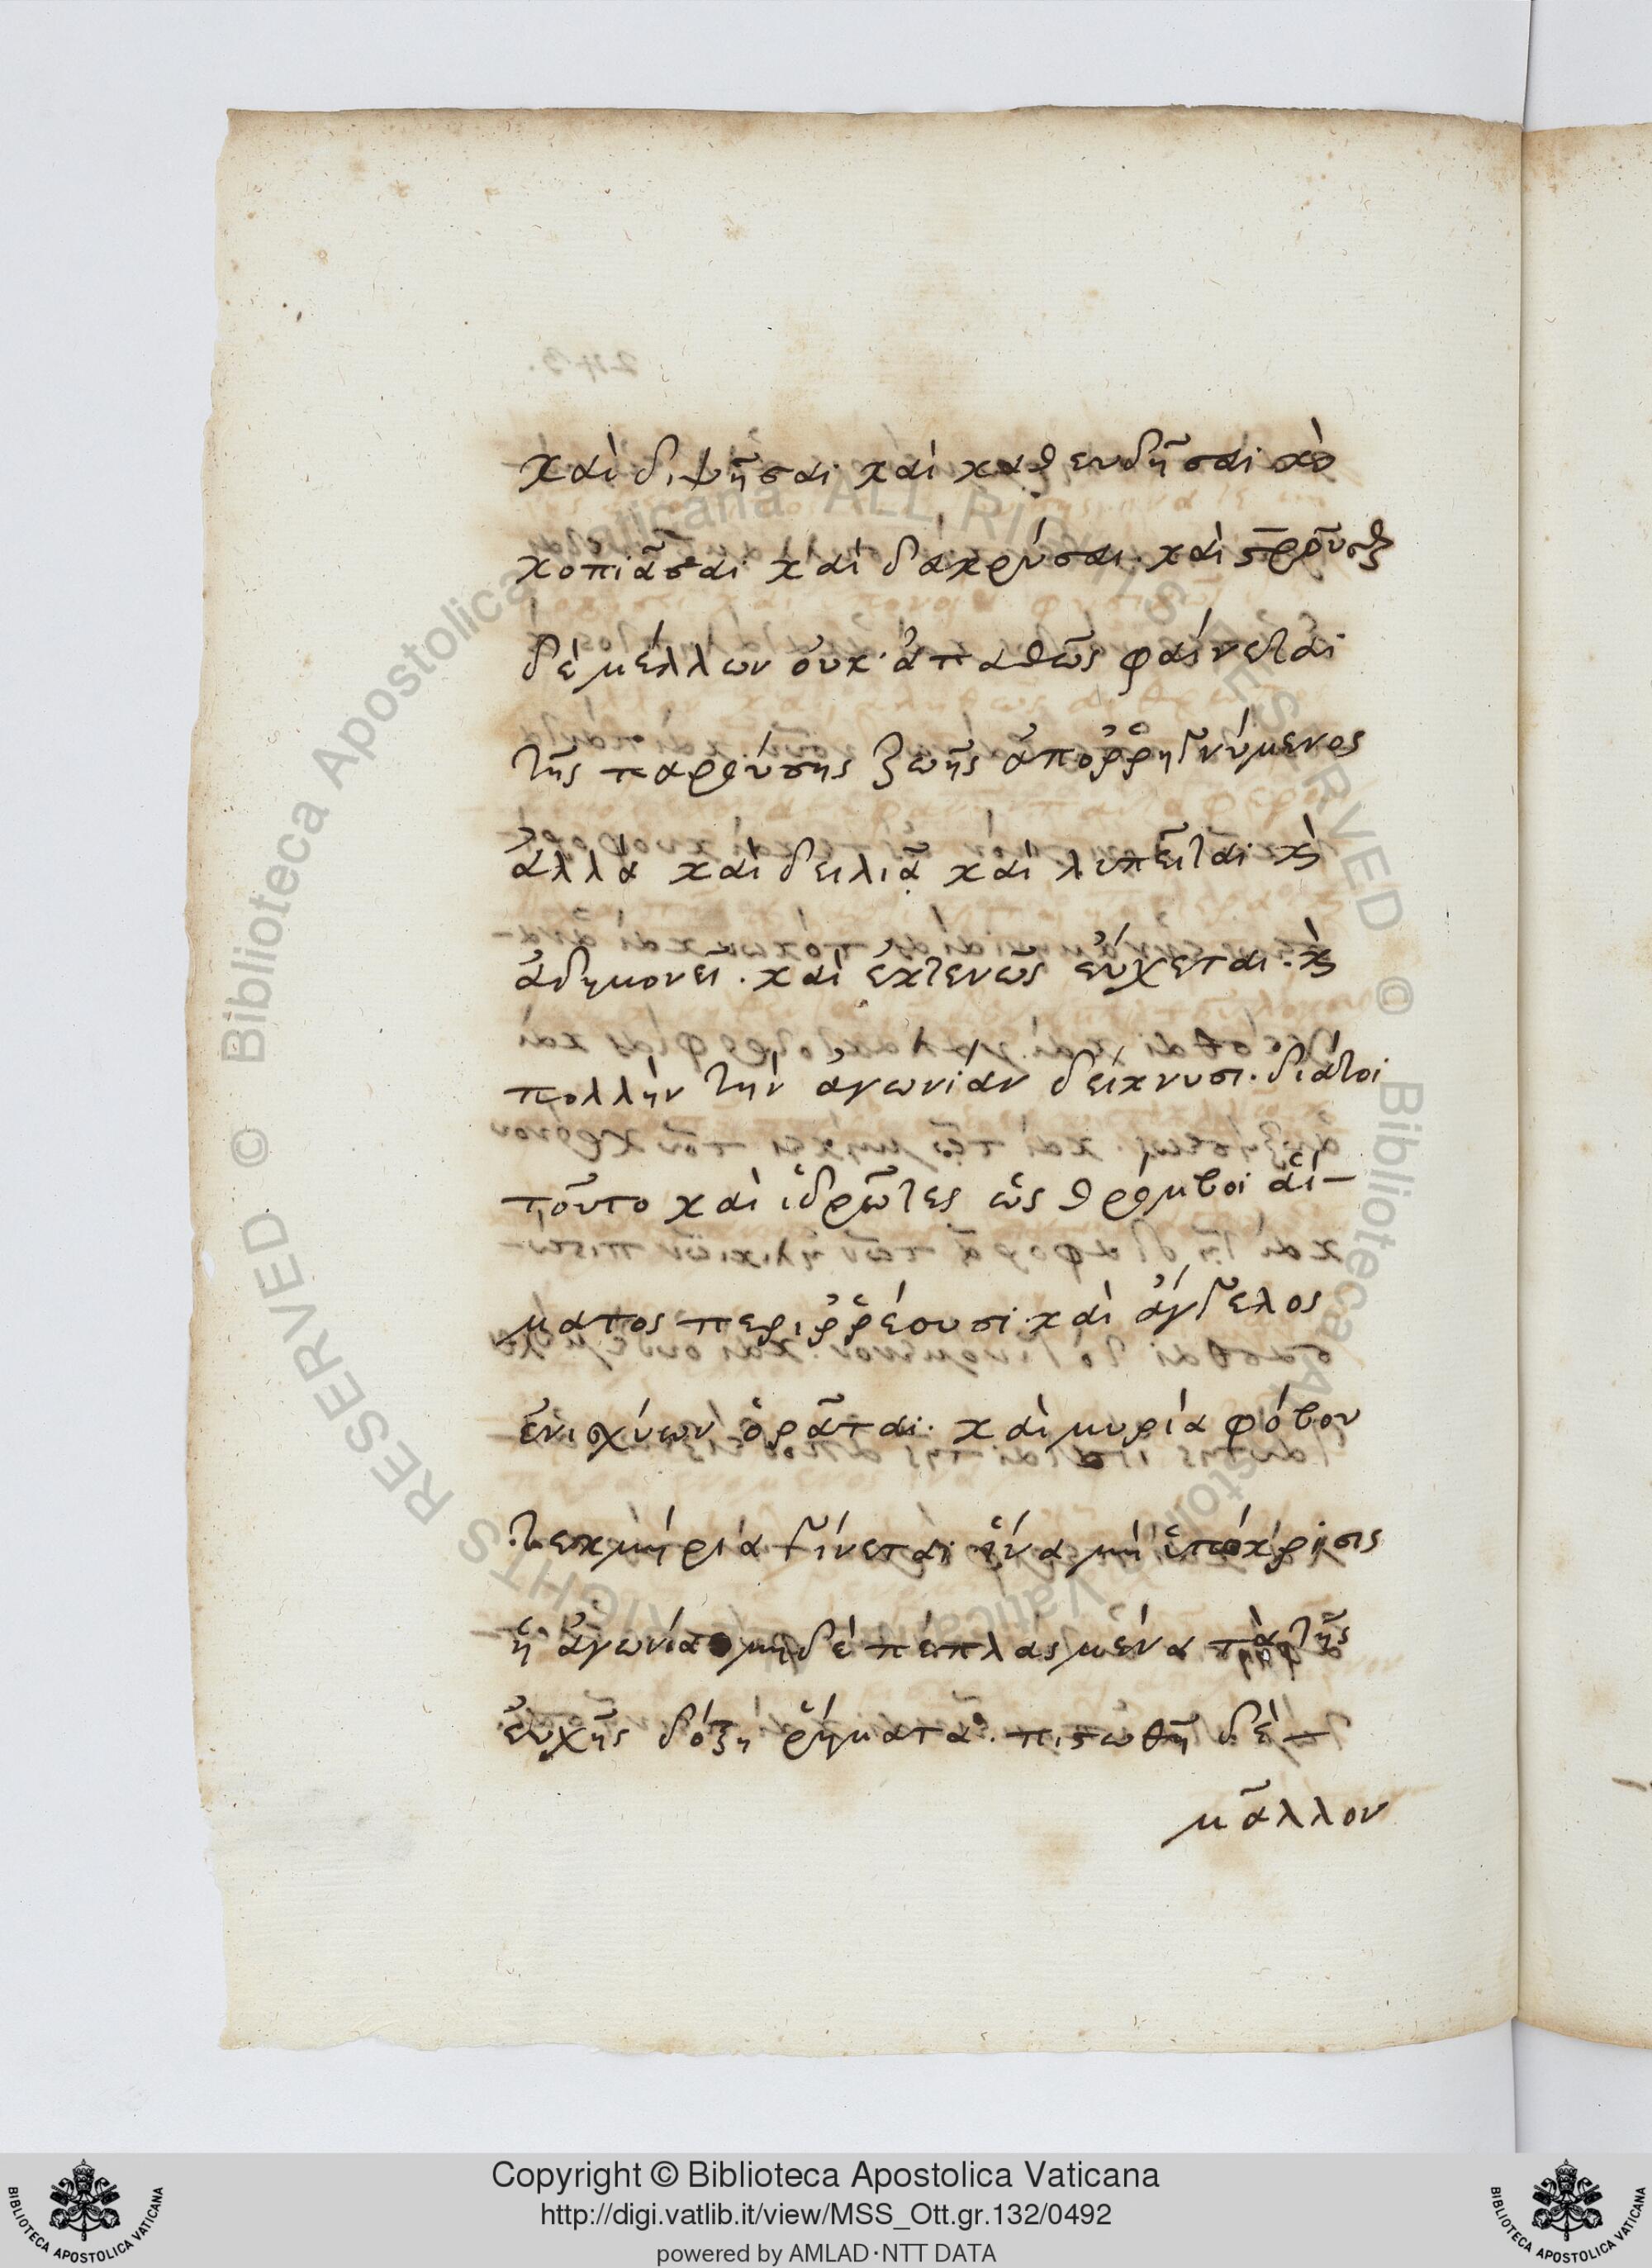 καὶ διψῆσαι καὶ καθευδῆσαι καὶ
κοπιᾶσαι καὶ δακρύσαι. καὶ
δὲ μέλλων οὐκ ἀπαθῶς φαίνεται
τῆς παρούσης ζωῆς ἀποῤῥηγνύμενος
ἀλλὰ καὶ δειλιᾶ καὶ λυπεῖται κ̀
ἀδημονεῖ. καὶ ἐκτενῶς εὔχεται. κ̀
πολλὴν τὴν ἀγωνίαν δείκνυσι. διάτοι
τοῦτο καὶ ἱδρῶτες ὡς θρόμβοι αἵ-
ματος περιῤῥέουσι. καὶ ἄγγελος
ἐνισχύων ὁρᾶται. καὶ μυρία φόβου
τεκμήρια γίνεται ἵνα μὴ ὑπόκρισις
ἡ ἀγωνία μηδὲ πεπλασμένα τὰ τῆς
εὐχῆς δόξη ῥήματα. πιστωθῆ δὲ
μᾶλλον
Copyright © Biblioteca Apostolica Vaticana
http://digi.vatlib.it/view/MSS_Ott.gr.132/0492
powered by AMLAD·NTT DATA
© Biblioteca Apostolica Vaticana ALL RIGHTS RESERVED
© Biblioteca Apostolica Vaticana ALL RIGHTS RESERVED
BIBLIOTECA APOSTOLICA VATICANA
BIBLIOTECA APOSTOLICA VATICANA